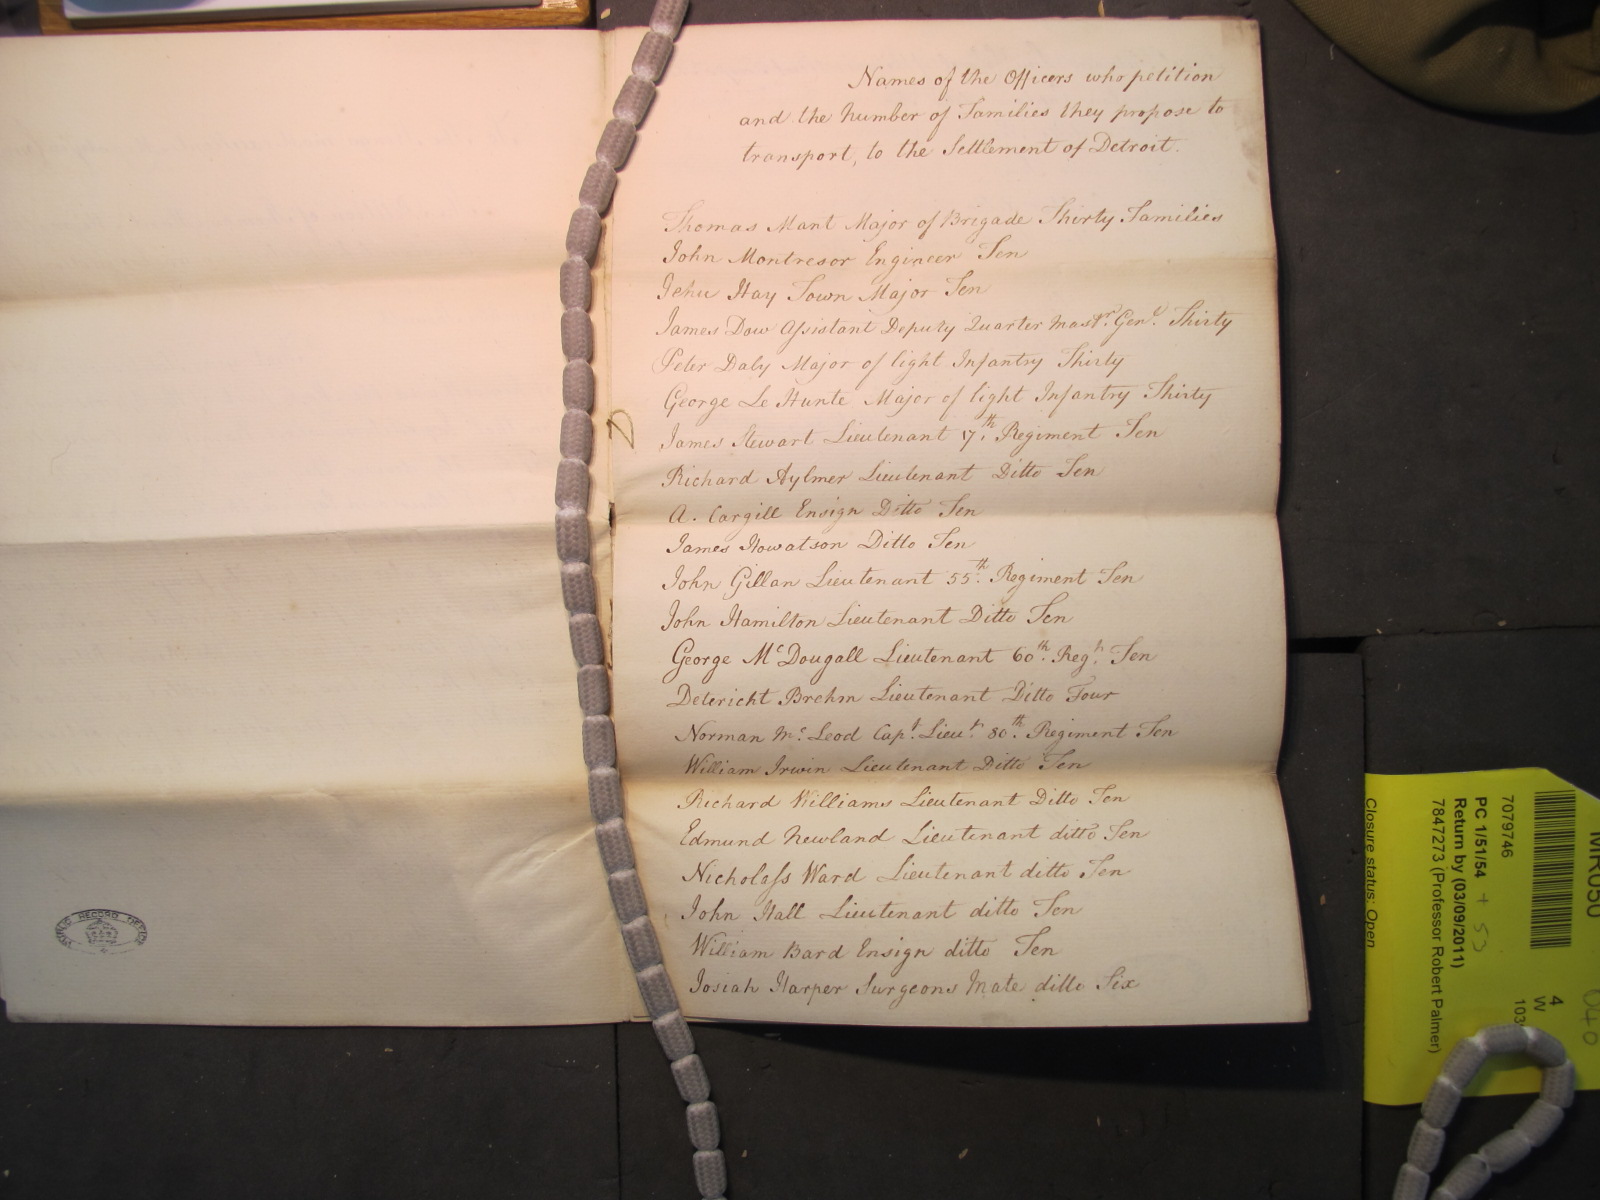 Names of the Officers who petition
and the Number of Families they propose to
transport, to the Settlement of Detroit.
Thomas Mant Major of Brigade Thirty Families
John Montresor Engineer Ten
Jehu Hay Town Major Ten
James Dow Assistant Deputy Quarter Mastr. Genl. Thirty
Peter Daly Major of light Infantry Thirty
George Le Hunte Major of light Infantry Thirty
James Stewart Lieutenant 17th. Regiment Ten
Richard Aylmer Lieutenant Ditto Ten
A. Cargill Ensign Ditto Ten
James Howatson Ditto Ten
John Gillan Lieutenant 55th. Regiment Ten
John Hamilton Lieutenant Ditto Ten
George McDougall Lieutenant 60th. Regt. Ten
Detericht Brehm Lieutenant Ditto Four
Norman Mc. Leod Capt. Lieut. 80th. Regiment Ten
William Irwin Lieutenant Ditto Ten
Richard Williams Lieutenant Ditto Ten
Edmund Newland Lieutenant ditto Ten
Nicholass Ward Lieutenant ditto Ten
John Hall Lieutenant ditto Ten
William Bard Ensign ditto Ten
Josiah Harper Surgeons Mate ditto Six
PUBLIC RECORD OFFICE
MR050
040
4
W
103
7079746
PC 1/51/54 + 53
Return by (03/09/2011)
7847273 (Professor Robert Palmer)
Closure status: Open